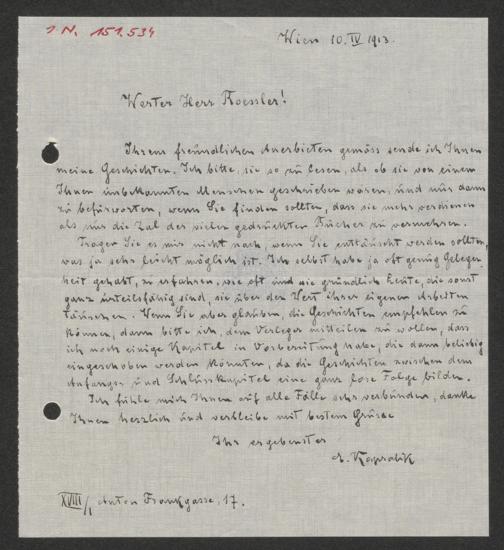 J. N. 151.534
Wien 10. IV 1913.
Werter Herr Roessler!
Ihrem freundlichen Anerbieten gemäss sende ich Ihnen
meine Geschichten. Ich bitte, sie so zu lesen, als ob sie von einem
Ihnen unbekannten Menschen geschrieben wären, und nur dann
zu befürworten, wenn Sie finden sollten, dass sie mehr verdienen
als nur die Zal der vielen gedruckten Bücher zu vermehren.
Tragen Sie es mir nicht nach, wenn Sie enttäuscht werden sollten,
was ja sehr leicht möglich ist. Ich selbst habe ja oft genug Gelegen-
heit gehabt, zu erfahren, wie oft und wie gründlich Leute, die sonst
ganz urteilsfähig sind, sie über den Wert ihrer eigenen Arbeiten
täuschen. Wenn Sie aber glauben, die Geschichten empfehlen zu
können, dann bitte ich, dem Verleger mitteilen zu wollen, dass
ich noch einige Kapitel in Vorbereitung habe, die dann beliebig
eingeschoben werden könnten, da die Geschichten zwischen dem
Anfangs und Schlusskapitel eine ganz lose Folge bilden.
Ich fühle mich Ihnen auf alle Fälle sehr verbunden, danke
Ihnen herzlich und verbleibe mit bestem Grusse
Ihr ergebenster
A. Kapralik
XVIII/1 Anton Frankgasse, 17.